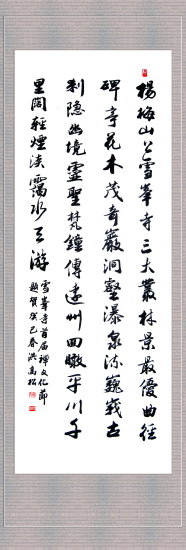 楊梅山公雪峯寺三大叢林景最優曲徑
碑亭花木茂奇巖洞壑瀑泉流巍峩古
刹隐幽境靈聖梵鐘傳遠州回瞰平川千
里闊輕煙淡靄水天游
雪峯寺首届禪文化節
題賀癸巳春洪高松